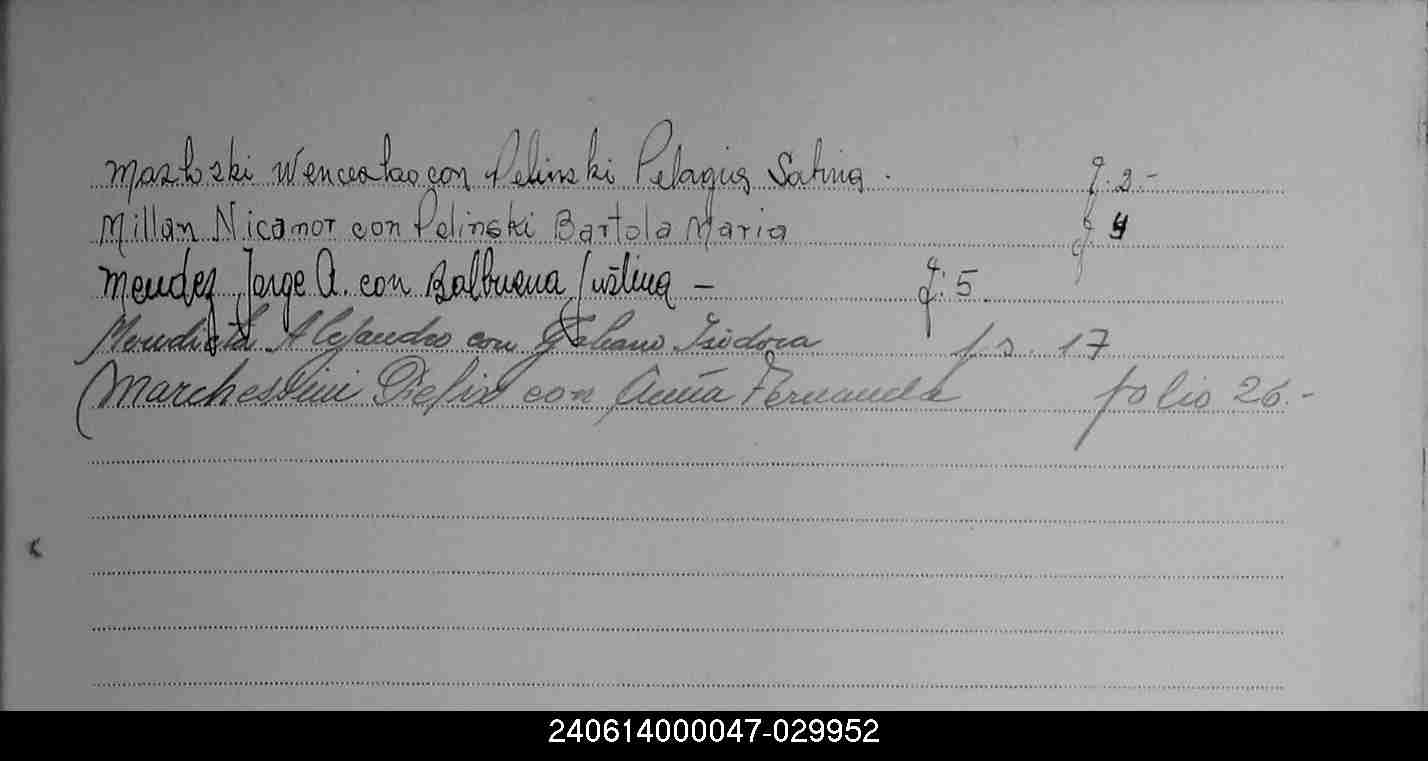 Mazloski Wenceslao con Pelinski Pelagia Satina. f. 2.-
Millan Nicanor con Pelinski Bartola Maria f. 4
Mendez Jorge A. con Balbuena Justina - f: 5
Mendieta Alejandro con Galeano Isidora fs. 17
Marchessini con Fernanda folio 26.-
240614000047-029952